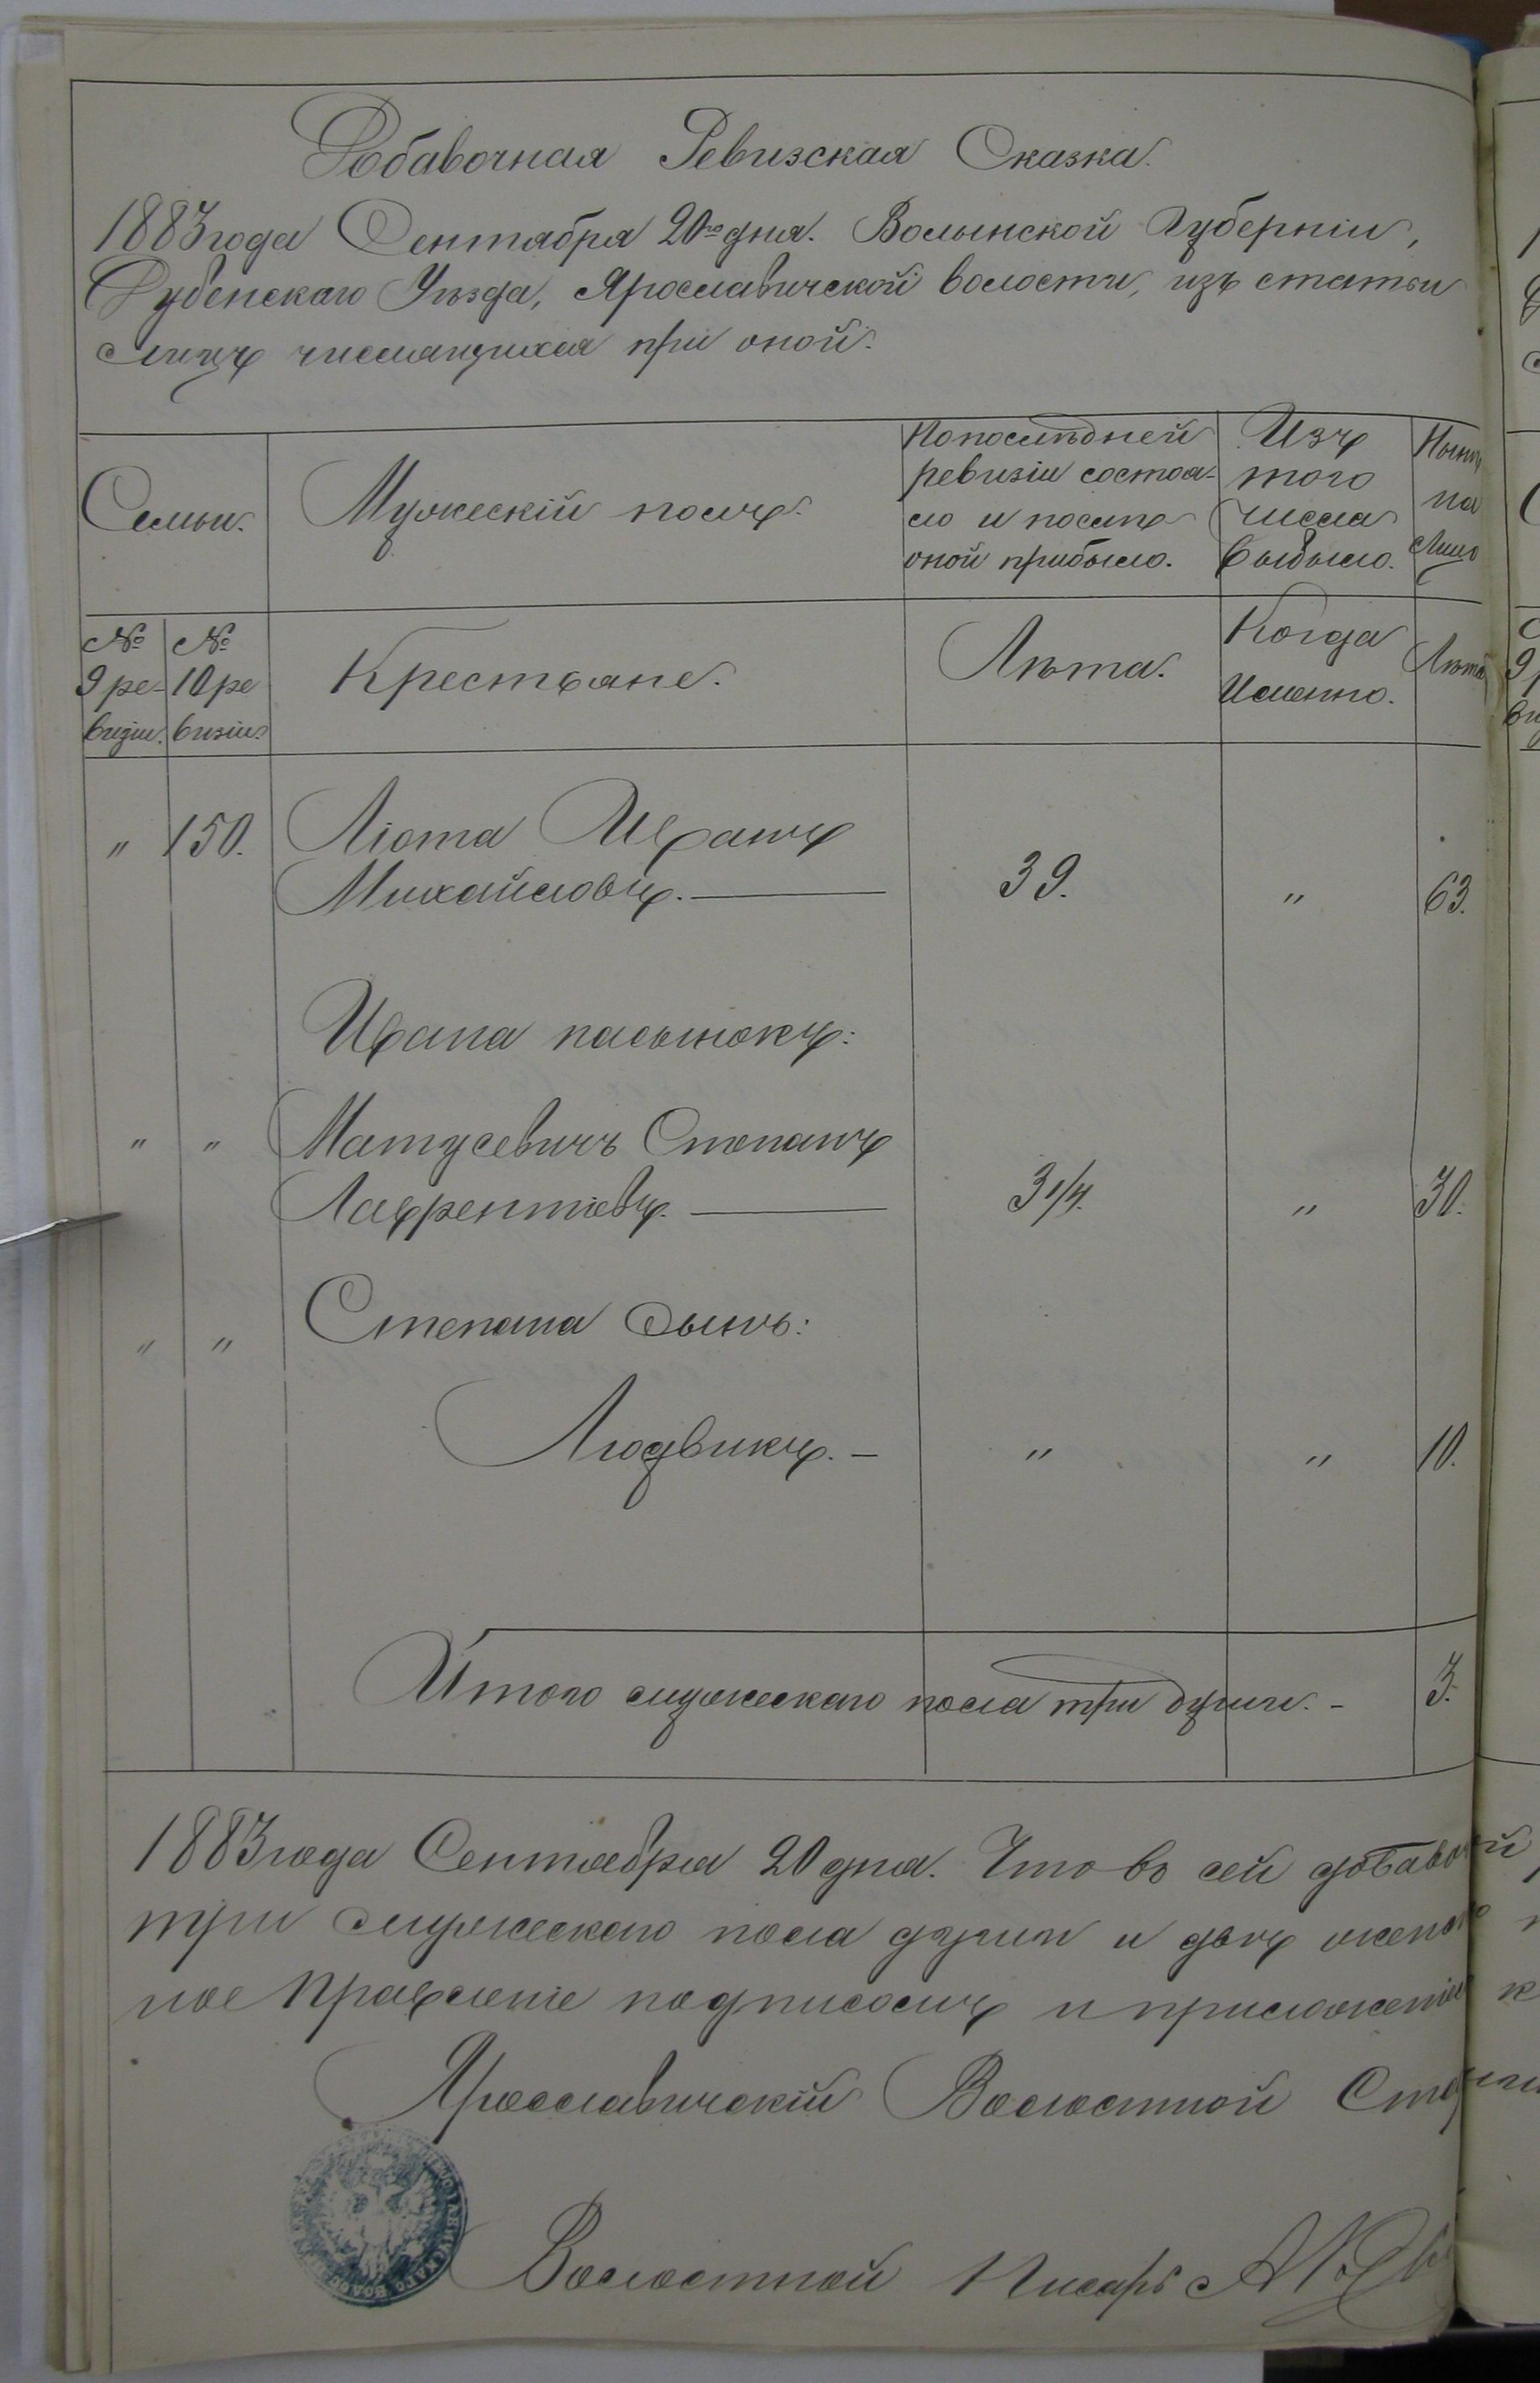 Добавочная Ревизская Сказка.
1883 года Сентября 20го дня. Волынской Губерніи,
Дубенскаго Уѣзда, Ярославичской волости, изъ статьи
лицъ числящихся при оной.
Семьи.
Мужескій полъ.
По послѣдней
ревизіи состоя-
ло и послѣ
оной прибыло.
Изъ
того
числа
выбыло.
Нынѣ
на
лицо
№
9 ре-
визіи.
№
10 ре
визіи.
Крестьяне.
Лѣта.
Когда
Именно.
Лѣта
" 150. Люта Иванъ
Михайловъ. — 39. " 63.
Ивана пасынокъ:
" " Матусевичъ Степанъ
Лаврентіевъ. — 3 1/4. " 30.
" " Степана сынъ:
Людвикъ. — " " 10.
Итого мужескаго пола три души. - 3.
1883 года Сентября 20 дня. Что въ сей добавоч
три мужескаго пола души и двѣ женска
ное Правленіе подписомъ и приложеніе
Ярославичскій Волостной Ста
Волостной Писарь